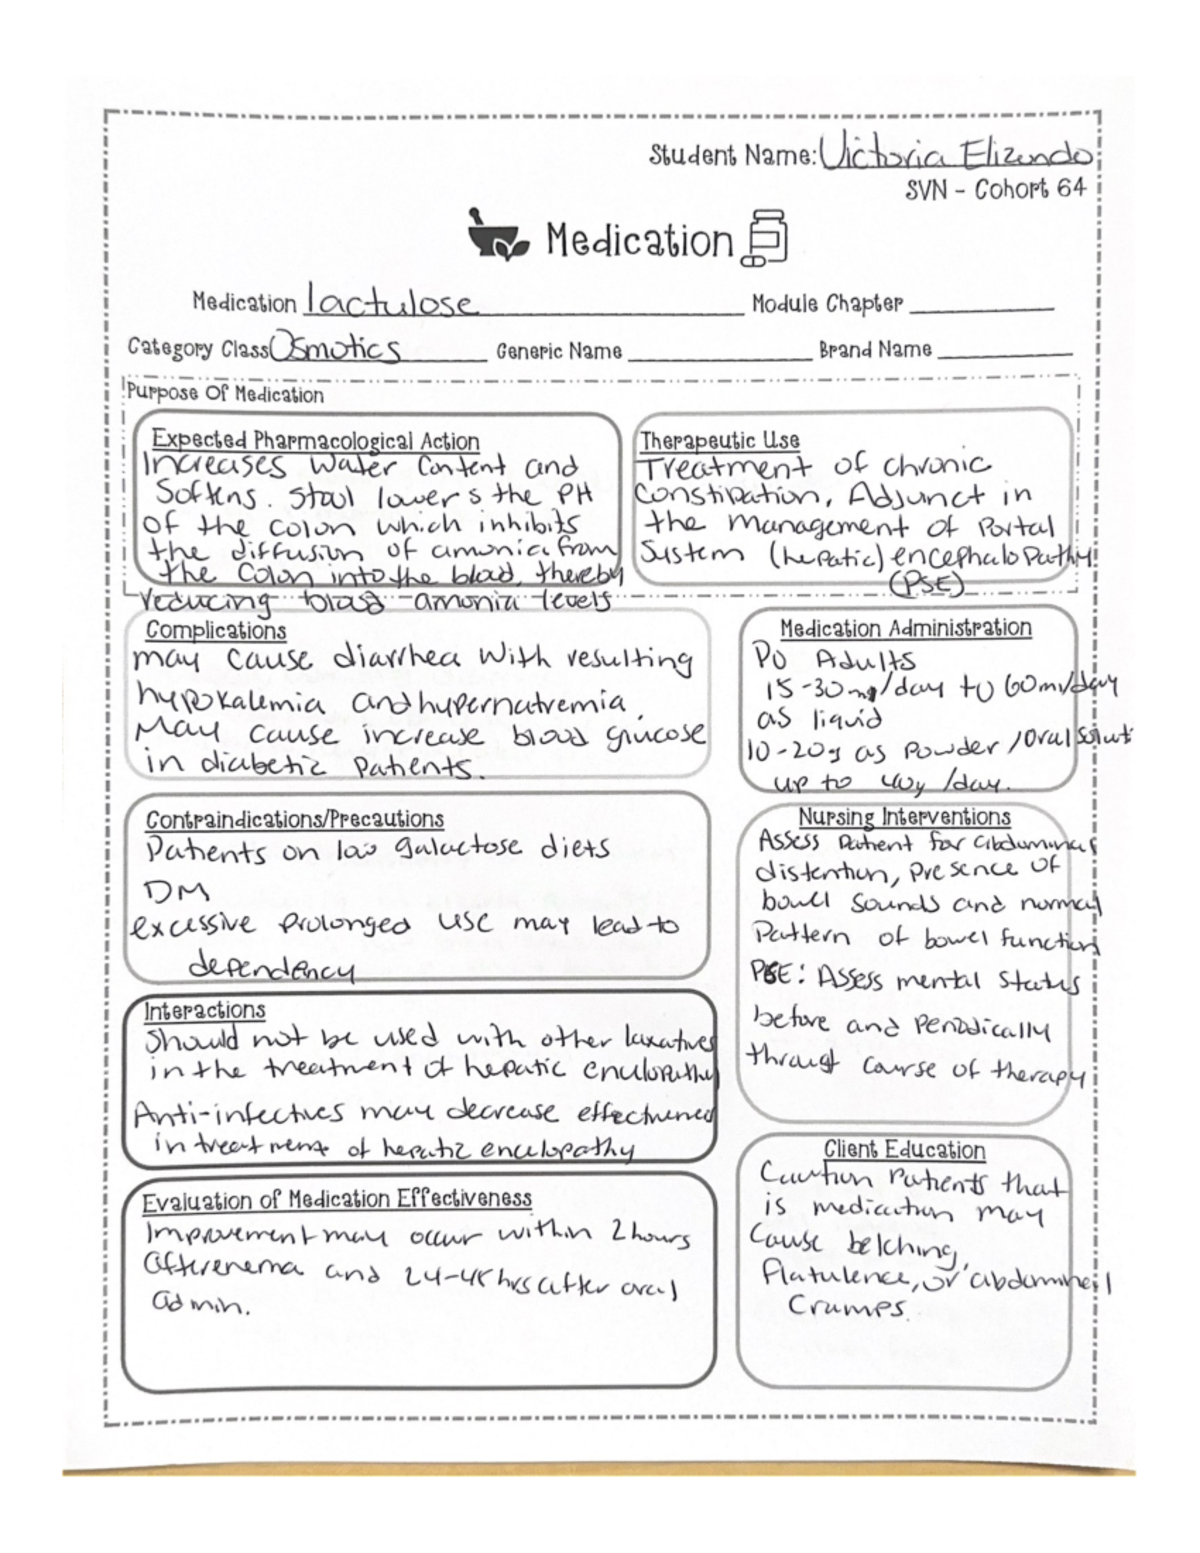 Student Name: Victoria Elizondo
SVN - Cohort 64
Medication
Medication lactulose Module Chapter
Category Class Osmotics Generic Name Brand Name
Purpose Of Medication
Expected Pharmacological Action
Increases Water Content and
Softens. Stool lowers the PH
of the colon which inhibits
the diffusion of amonia from
the Colon into the blood, thereby
reducing blood amonia levels
Therapeutic Use
Treatment of chronic
Constipation, Adjunct in
the management of Portal
System (hepatic) encephalopathy
(PSE)
Complications
may cause diarrhea with resulting
hypokalemia and hypernatremia.
May cause increase blood glucose
in diabetic patients.
Medication Administration
PO Adults
15-30 /day to 60ml/day
as liquid
10-20g as powder/oral solut
up to 40g /day.
Contraindications/Precautions
Patients on low galactose diets
DM
excessive prolonged use may lead to
dependency
Nursing Interventions
Assess Patient for abdominal
distention, presence of
bowel sounds and normal
Pattern of bowel function
PSE: Assess mental status
before and periodically
through course of therapy
Interactions
Should not be used with other laxatives
in the treatment of hepatic
Anti-infectives may decrease
in treatment of hepatic
Client Education
Caution Patients that
is medication may
Cause belching,
flatulence, or abdominal
cramps.
Evaluation of Medication Effectiveness
Improvement may occur within 2 hours
after enema and 24-48 hrs after oral
admin.